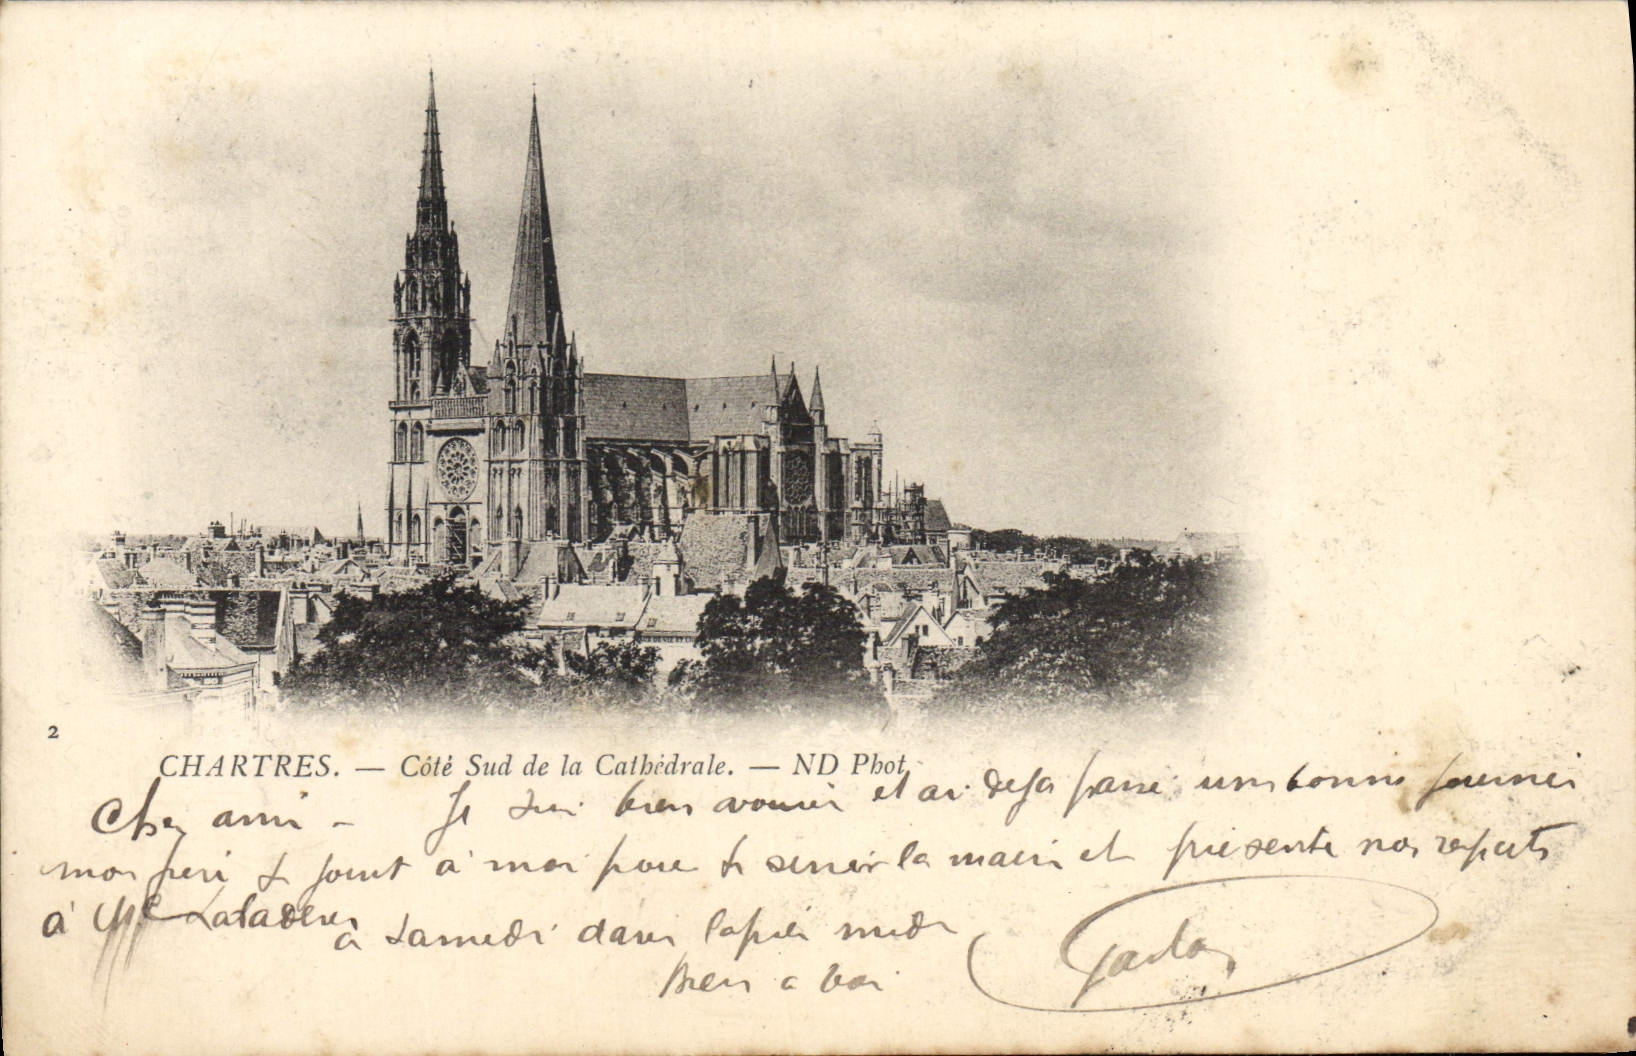 2
CHARTRES. — Côté Sud de la Cathédrale. — ND Phot.
Cher ami - Je suis bien et ai deja passé une bonne journée
mon père se joint à moi pour te serrer la main et présente nos respects
à
à samedi dans l'après midi
Bien a toi
Gaston